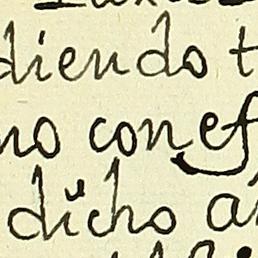 diendo t
no conef
dicho a